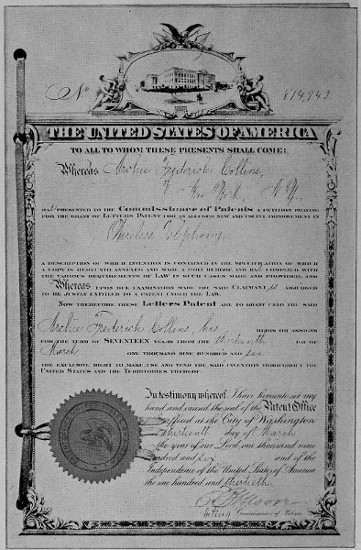 No 814,942
THE UNITED STATES OF AMERICA
TO ALL TO WHOM THESE PRESENTS SHALL COME:
Whereas Archie Frederick Collins,
of New York N.Y.
HAS PRESENTED TO THE Commissioner of Patents A PETITION PRAYING
FOR THE GRANT OF LETTERS PATENT FOR AN ALLEGED NEW AND USEFUL IMPROVEMENT IN
Wireless Telephony,
A DESCRIPTION OF WHICH INVENTION IS CONTAINED IN THE SPECIFICATION OF WHICH
A COPY IS HEREUNTO ANNEXED AND MADE A PART HEREOF AND HAS COMPLIED WITH
THE VARIOUS REQUIREMENTS OF LAW IN SUCH CASES MADE AND PROVIDED, AND
Whereas UPON DUE EXAMINATION MADE THE SAID CLAIMANT is ADJUDGED
TO BE JUSTLY ENTITLED TO A PATENT UNDER THE LAW.
NOW THEREFORE THESE Letters Patent ARE TO GRANT UNTO THE SAID
Archie Frederick Collins, his HEIRS OR ASSIGNS
FOR THE TERM OF SEVENTEEN YEARS FROM THE thirteenth DAY OF
March ONE THOUSAND NINE HUNDRED AND six
THE EXCLUSIVE RIGHT TO MAKE, USE AND VEND THE SAID INVENTION THROUGHOUT THE
UNITED STATES AND THE TERRITORIES THEREOF.
In testimony whereof I have hereunto set my
hand and caused the seal of the Patent Office
to be affixed at the City of Washington
this thirteenth day of March
in the year of our Lord one thousand nine
hundred and six and of the
Independence of the United States of America
the one hundred and thirtieth.
Acting Commissioner of Patents